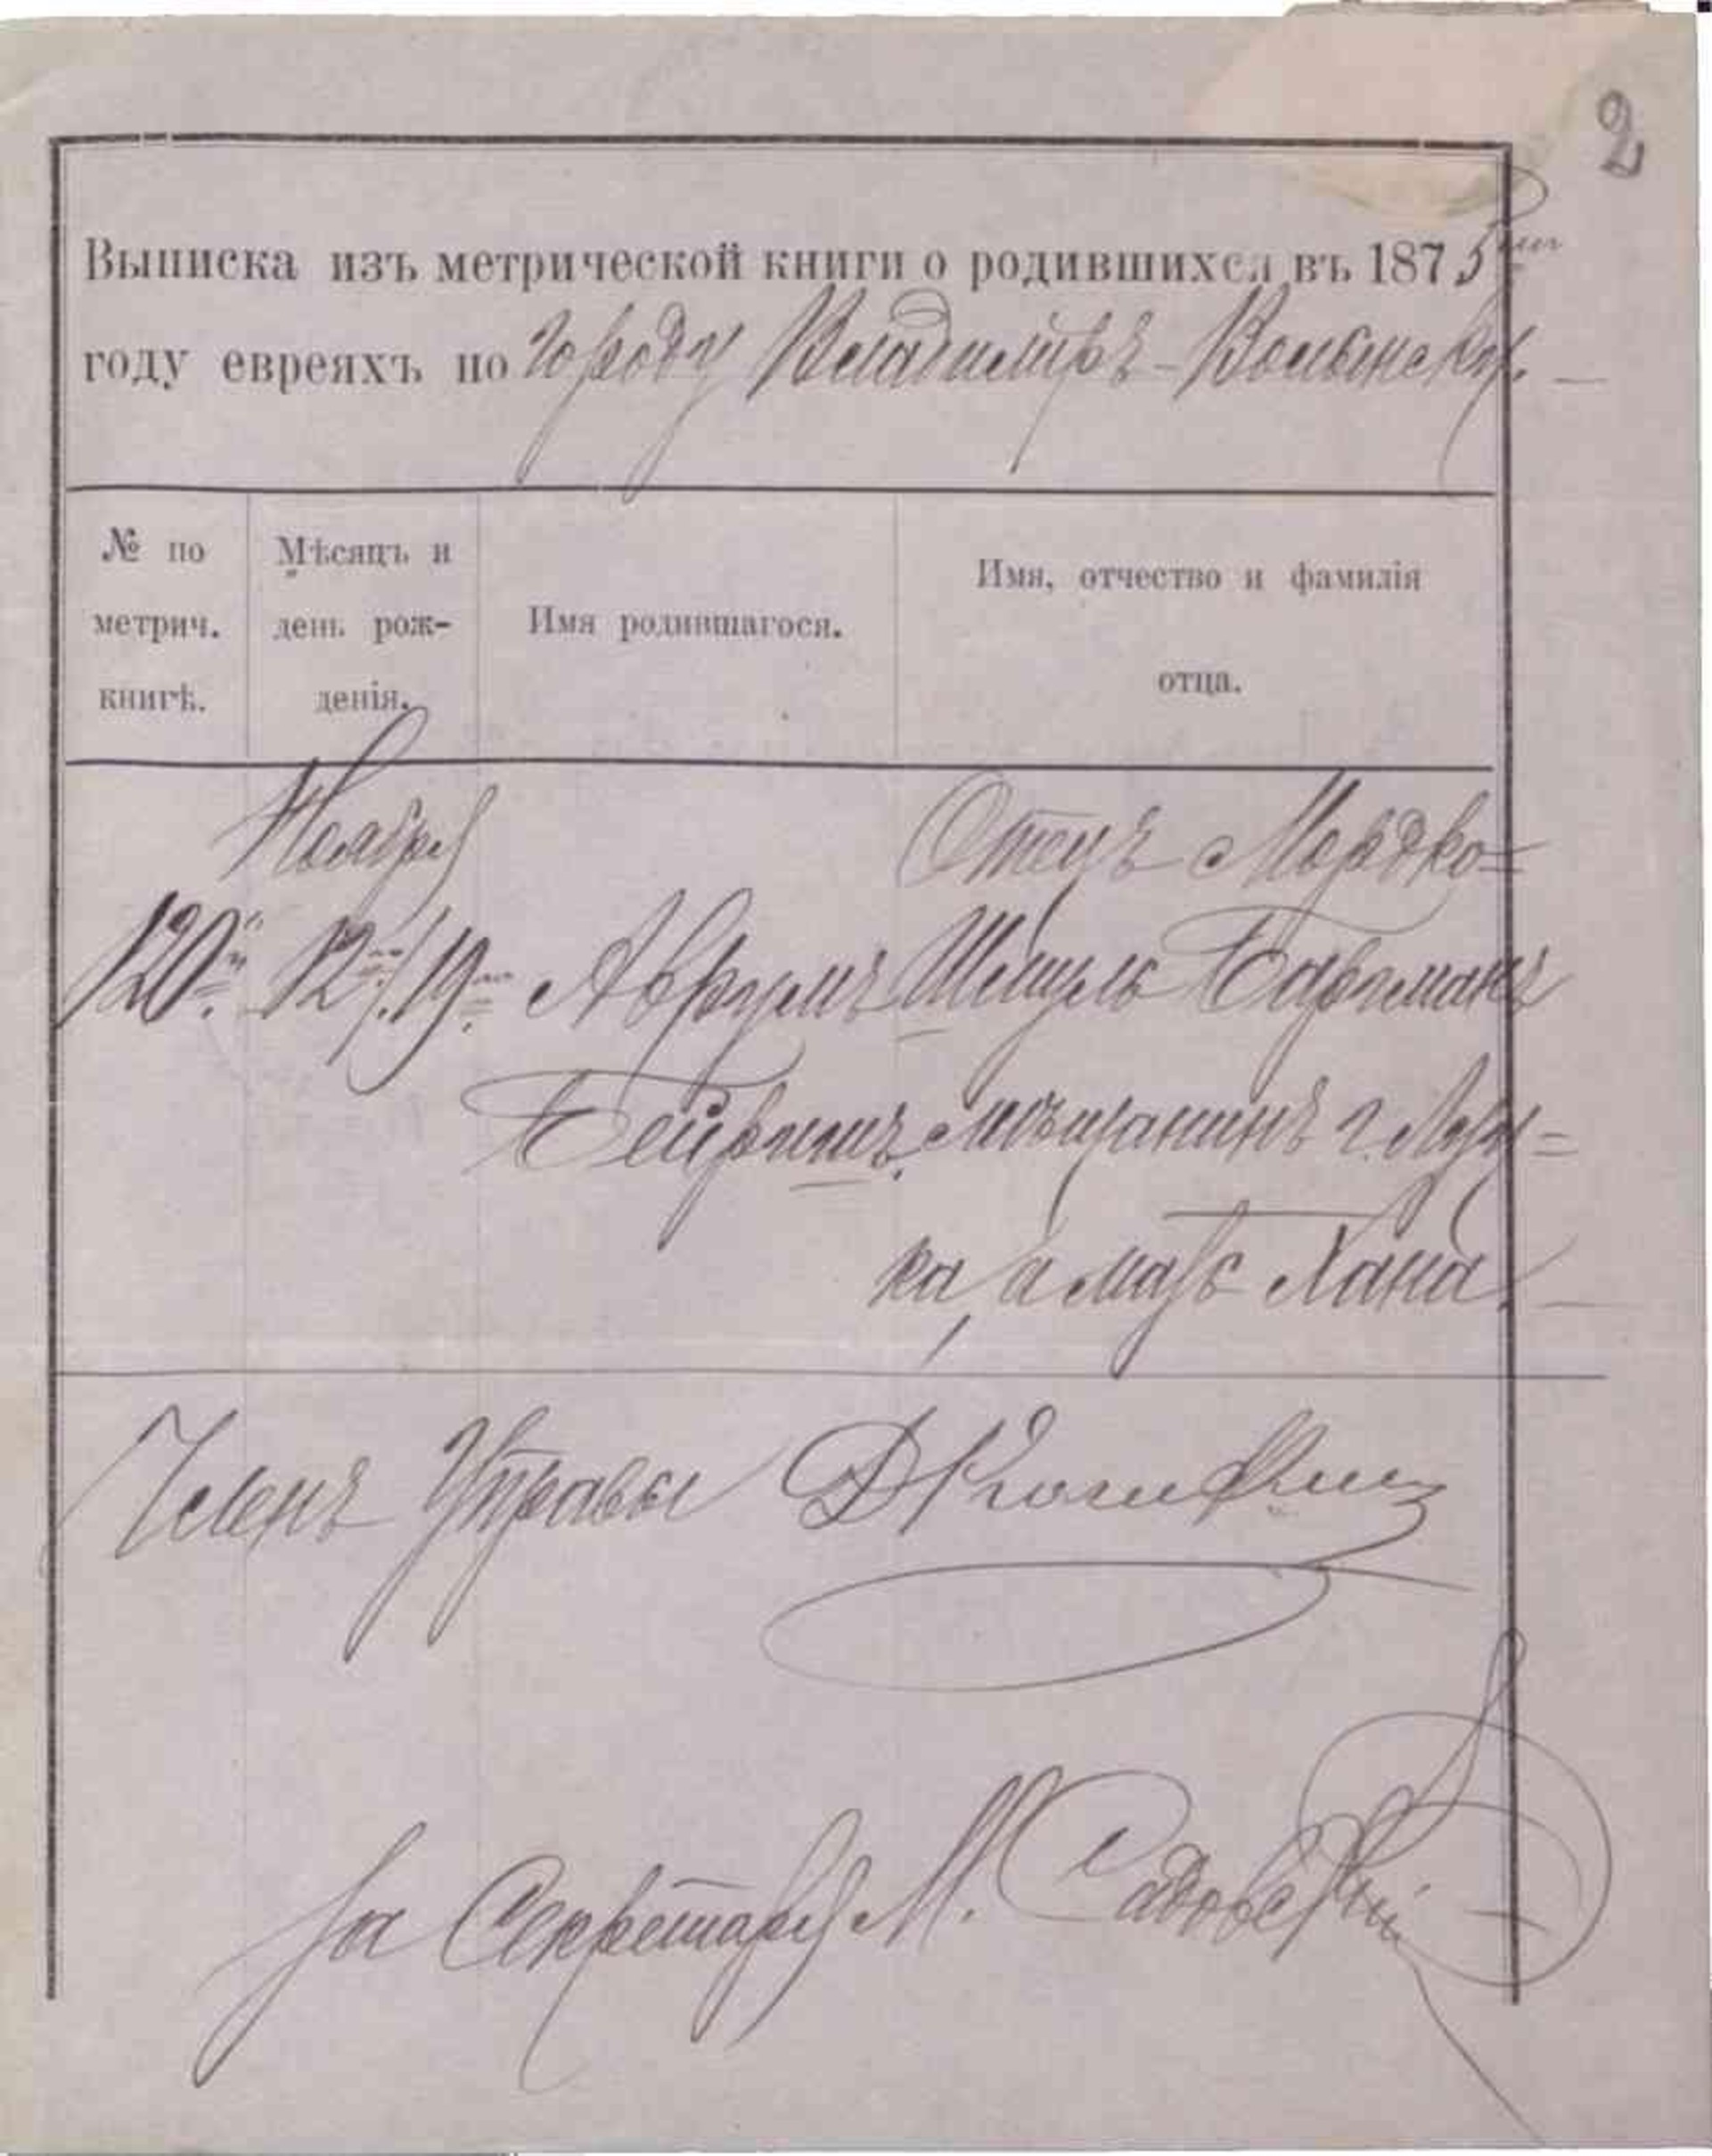 2
Выписка изъ метрической книги о родившихся въ 1875
году евреяхъ по городу Владимiръ-Волынску.
№ по
метрич.
книгѣ.
Мѣсяцъ и
день рож-
денія.
Имя родившагося.
Имя, отчество и фамилія
отца.
Ноября
Отецъ Мордко=
120. 12/19. Аврумъ Шмуль
мѣщанинъ г. Луц=
ка, а мать Хана.
Членъ Управы
За Секретаря М. Садовскій